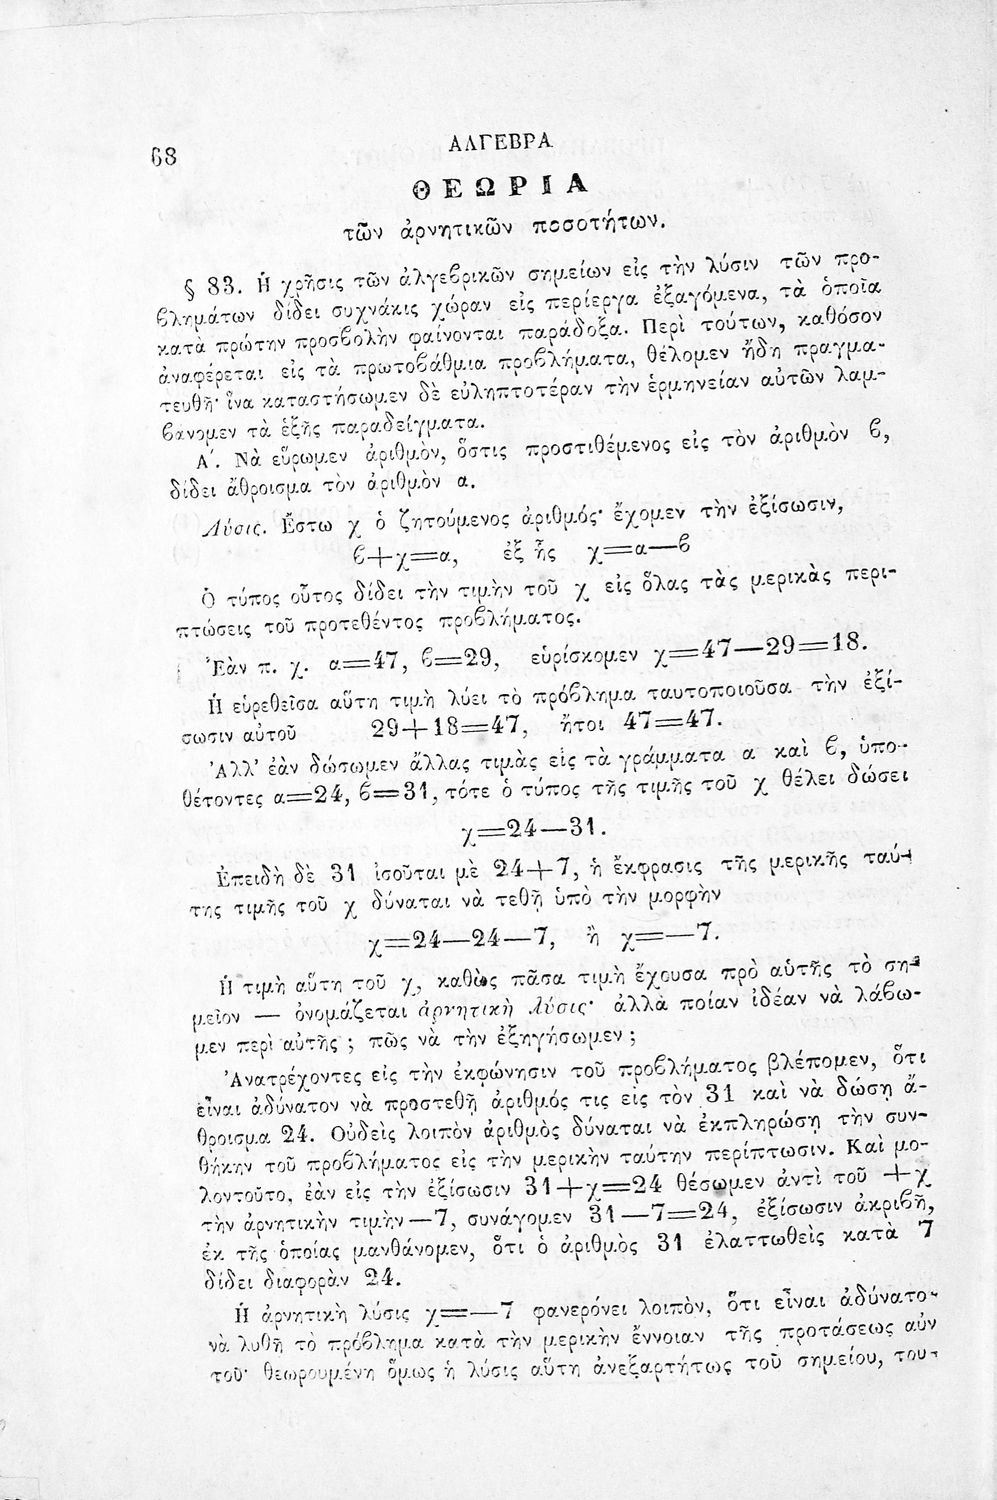 68
ΑΛΓΕΒΡΑ
ΘΕΩΡΙΑ
τῶν ἀρνητικῶν ποσοτήτων.
§ 83. Ἡ χρῆσις τῶν ἀλγεβρικῶν σημείων εἰς τὴν λύσιν τῶν προ-
βλημάτων δίδει συχνάκις χώραν εἰς περίεργα ἐξαγόμενα, τὰ ὁποῖα
κατὰ πρώτην προσβολὴν φαίνονται παράδοξα. Περὶ τούτων, καθόσον
ἀναφέρεται εἰς τὰ πρωτοβάθμια προβλήματα, θέλομεν ἤδη πραγμα-
τευθῆ· ἵνα καταστήσωμεν δὲ εὐληπτοτέραν τὴν ἑρμηνείαν αὐτῶν λαμ-
βάνομεν τὰ ἑξῆς παραδείγματα.
Α΄. Νὰ εὕρωμεν ἀριθμὸν, ὅστις προστιθέμενος εἰς τὸν ἀριθμὸν β,
δίδει ἄθροισμα τὸν ἀριθμὸν α.
Λύσις. Ἔστω χ ὁ ζητούμενος ἀριθμός· ἔχομεν τὴν ἐξίσωσιν,
β+χ=α, ἐξ ἧς χ=α—β
Ὁ τύπος οὗτος δίδει τὴν τιμὴν τοῦ χ εἰς ὅλας τὰς μερικὰς περι-
πτώσεις τοῦ προτεθέντος προβλήματος.
Ἐὰν π. χ. α=47, β=29, εὑρίσκομεν χ=47—29=18.
Ἡ εὑρεθεῖσα αὕτη τιμὴ λύει τὸ πρόβλημα ταυτοποιοῦσα τὴν ἐξί-
σωσιν αὐτοῦ 29+18=47, ἤτοι 47=47.
Ἀλλ' ἐὰν δώσωμεν ἄλλας τιμὰς εἰς τὰ γράμματα α καὶ β, ὑπο-
θέτοντες α=24, β=31, τότε ὁ τύπος τῆς τιμῆς τοῦ χ θέλει δώσει
χ=24—31.
Ἐπειδὴ δὲ 31 ἰσοῦται μὲ 24+7, ἡ ἔκφρασις τῆς μερικῆς ταύ-
της τιμῆς τοῦ χ δύναται νὰ τεθῇ ὑπὸ τὴν μορφὴν
χ=24—24—7, ἢ χ=—7.
Ἡ τιμὴ αὕτη τοῦ χ, καθὼς πᾶσα τιμὴ ἔχουσα πρὸ αὑτῆς τὸ ση-
μεῖον — ὀνομάζεται ἀρνητικὴ λύσις· ἀλλὰ ποίαν ἰδέαν νὰ λάβω-
μεν περὶ αὐτῆς ; πῶς νὰ τὴν ἐξηγήσωμεν ;
Ἀνατρέχοντες εἰς τὴν ἐκφώνησιν τοῦ προβλήματος βλέπομεν, ὅτι
εἶναι ἀδύνατον νὰ προστεθῇ ἀριθμός τις εἰς τὸν 31 καὶ νὰ δώσῃ ἄ-
θροισμα 24. Οὐδεὶς λοιπὸν ἀριθμὸς δύναται νὰ ἐκπληρώσῃ τὴν συν-
θήκην τοῦ προβλήματος εἰς τὴν μερικὴν ταύτην περίπτωσιν. Καὶ μο-
λοντοῦτο, ἐὰν εἰς τὴν ἐξίσωσιν 31+χ=24 θέσωμεν ἀντὶ τοῦ +χ
τὴν ἀρνητικὴν τιμὴν —7, συνάγομεν 31—7=24, ἐξίσωσιν ἀκριβῆ,
ἐκ τῆς ὁποίας μανθάνομεν, ὅτι ὁ ἀριθμὸς 31 ἐλαττωθεὶς κατὰ 7
δίδει διαφορὰν 24.
Ἡ ἀρνητικὴ λύσις χ=—7 φανερόνει λοιπὸν, ὅτι εἶναι ἀδύνατο-
νὰ λυθῇ τὸ πρόβλημα κατὰ τὴν μερικὴν ἔννοιαν τῆς προτάσεως αὐν
τοῦ· θεωρουμένη ὅμως ἡ λύσις αὕτη ἀνεξαρτήτως τοῦ σημείου, του-